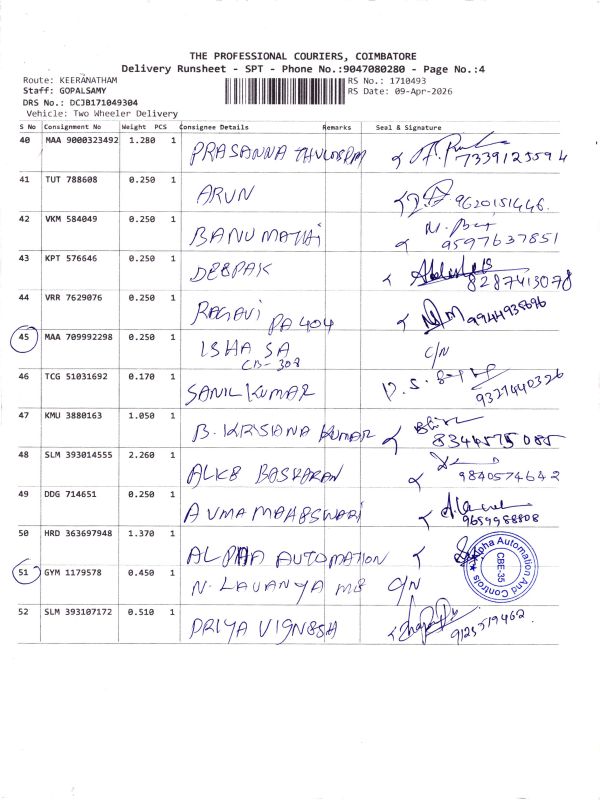 THE PROFESSIONAL COURIERS, COIMBATORE
Delivery Runsheet - SPT - Phone No.:9047080280 - Page No.:4
Route: KEERANATHAM
RS No.: 1710493
Staff: GOPALSAMY
RS Date: 09-Apr-2026
DRS No.: DCJB171049304
Vehicle: Two Wheeler Delivery
S No Consignment No Weight PCS Consignee Details Remarks Seal & Signature
40 MAA 9000323492 1.280 1 PRASANNA 7339123594
41 TUT 788608 0.250 1 ARUN 9620151446
42 VKM 584049 0.250 1 BANUMATHI 9597637851
43 KPT 576646 0.250 1 DEEPAK 8287413078
44 VRR 7629076 0.250 1 RAGAVI PA 404 9944935696
45 MAA 709992298 0.250 1 ISHA SA C/N
CB-308
46 TCG 51031692 0.170 1 SANIL KUMAR 9321440326
47 KMU 3880163 1.050 1 B. KRISHNA KUMAR 8344575085
48 SLM 393014555 2.260 1 BASKARAN 9840574642
49 DDG 714651 0.250 1 UMA MAHESWARI 9659988808
50 HRD 363697948 1.370 1 ALPHA AUTOMATION
Alpha Automation And Controls CBE-35
51 GYM 1179578 0.450 1 N. LAVANYA C/N
52 SLM 393107172 0.510 1 PRIYA VIGNESH 9123519462